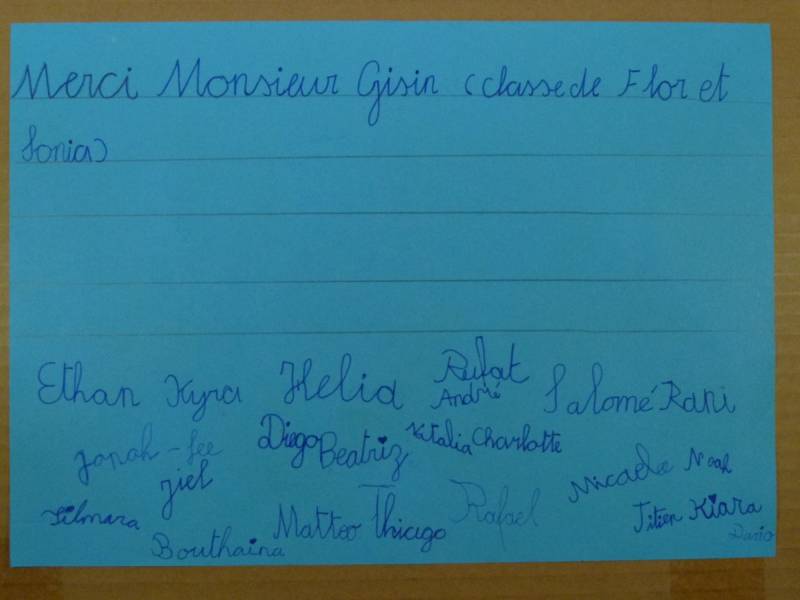 Merci Monsieur Gisin (classe de Flor et
Sonia)
Ethan Kyra Helia Rufat Salomé Rani
André
Diego Beatriz Natalia Charlotte
Micaela Noah
Jiel
Silmara Matteo Thiago Rafael Titien Kiara
Bouthaina Dario